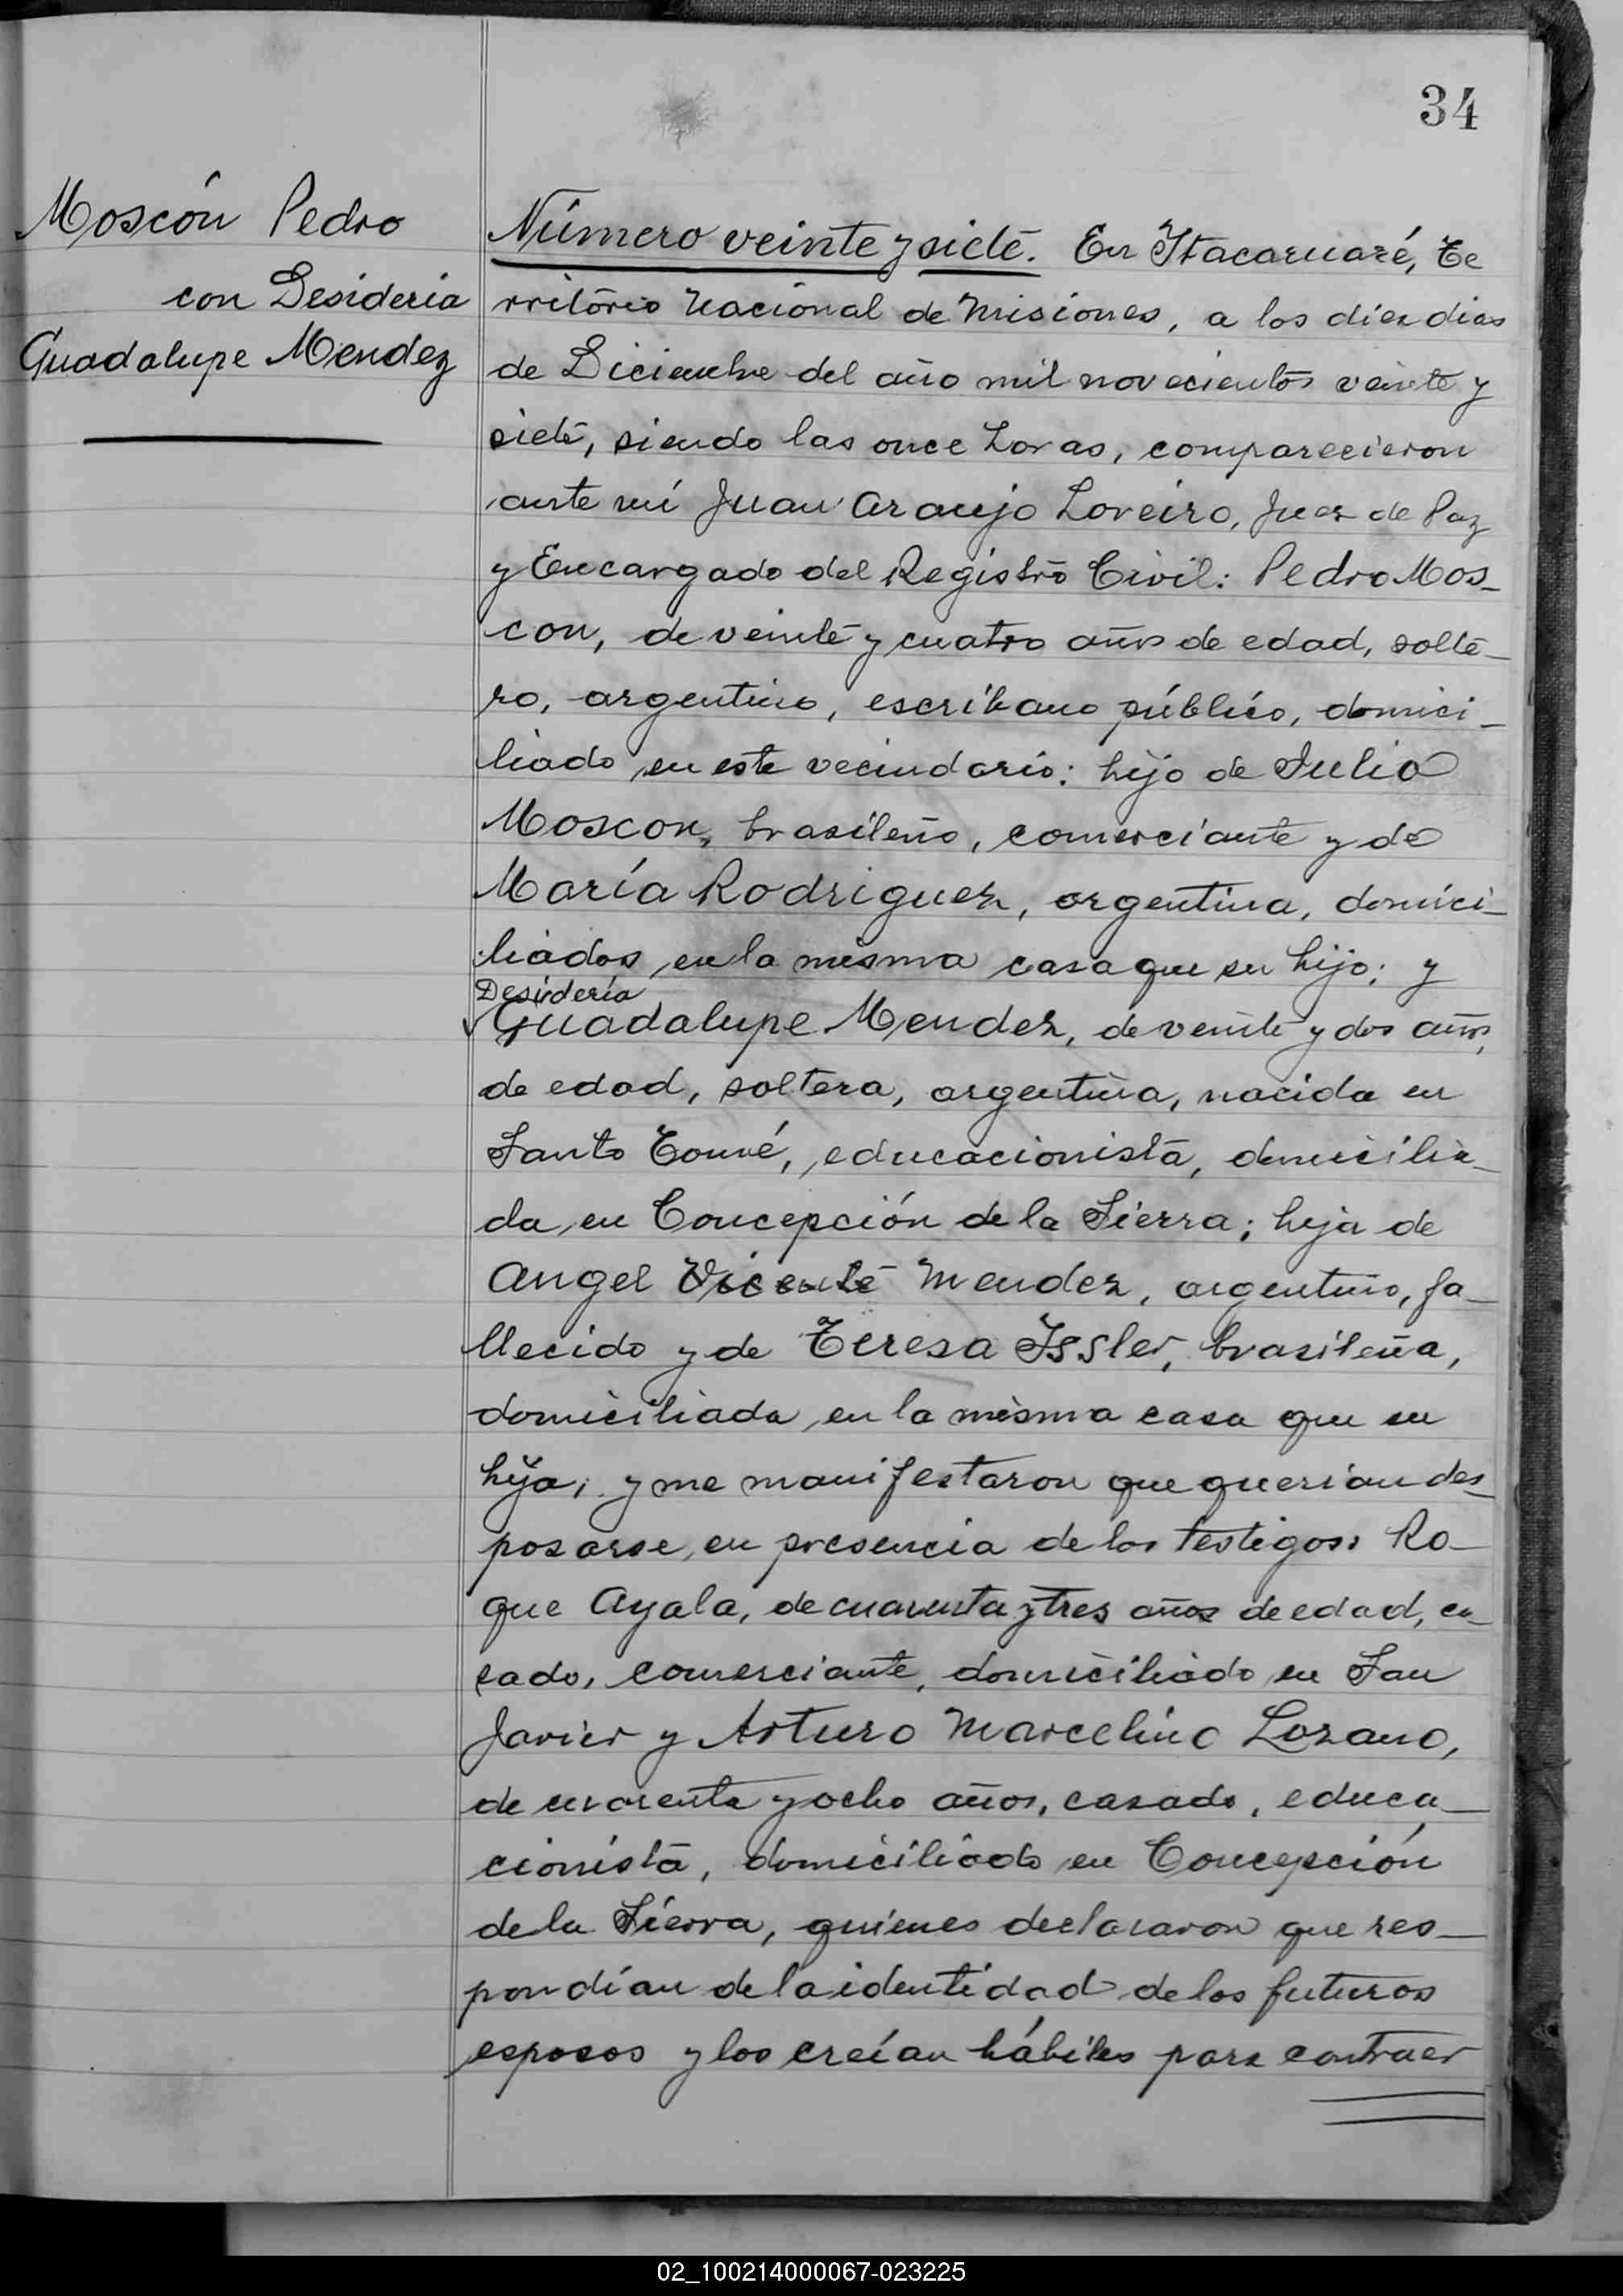 34
Moscón Pedro
con Desideria
Guadalupe Mendez
Número veinte y siete. En Itacaruaré, Te
rritorio Nacional de Misiones, a los diez dias
de Diciembre del año mil novecientos veinte y
siete, siendo las once horas, comparecieron
ante mí Juan Araujo Loreiro, Juez de Paz
y Encargado del Registro Civil: Pedro Mos-
con, de veinte y cuatro años de edad, solte-
ro, argentino, escribano público, domici-
liado en este vecindario; hijo de Julio
Moscon, brasileño, comerciante y de
María Rodriguez, argentina, domici-
liados en la misma casa que su hijo; y
Desideria
Guadalupe Mendez, de veinte y dos años
de edad, soltera, argentina, nacida en
Santo Tomé, educacionista, domicilia-
da en Concepción de la Sierra; hija de
Angel Vicente Mendez, argentino, fa-
llecido y de Teresa Issler, brasileña,
domiciliada en la misma casa que su
hija; y me manifestaron que querian des-
posarse en presencia de los testigos: Ro-
que Ayala, de cuarenta y tres años de edad, ca-
sado, comerciante, domiciliado en San
Javier y Arturo Marcelino Lozano,
de cuarenta y ocho años, casado, educa-
cionista, domiciliado en Concepción
de la Sierra, quienes declararon que res-
pondían de la identidad de los futuros
esposos y los creían hábiles para contraer
02_100214000067-023225